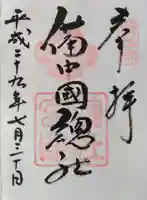 奉拝
備中國總社
平成二十九年七月二十一日